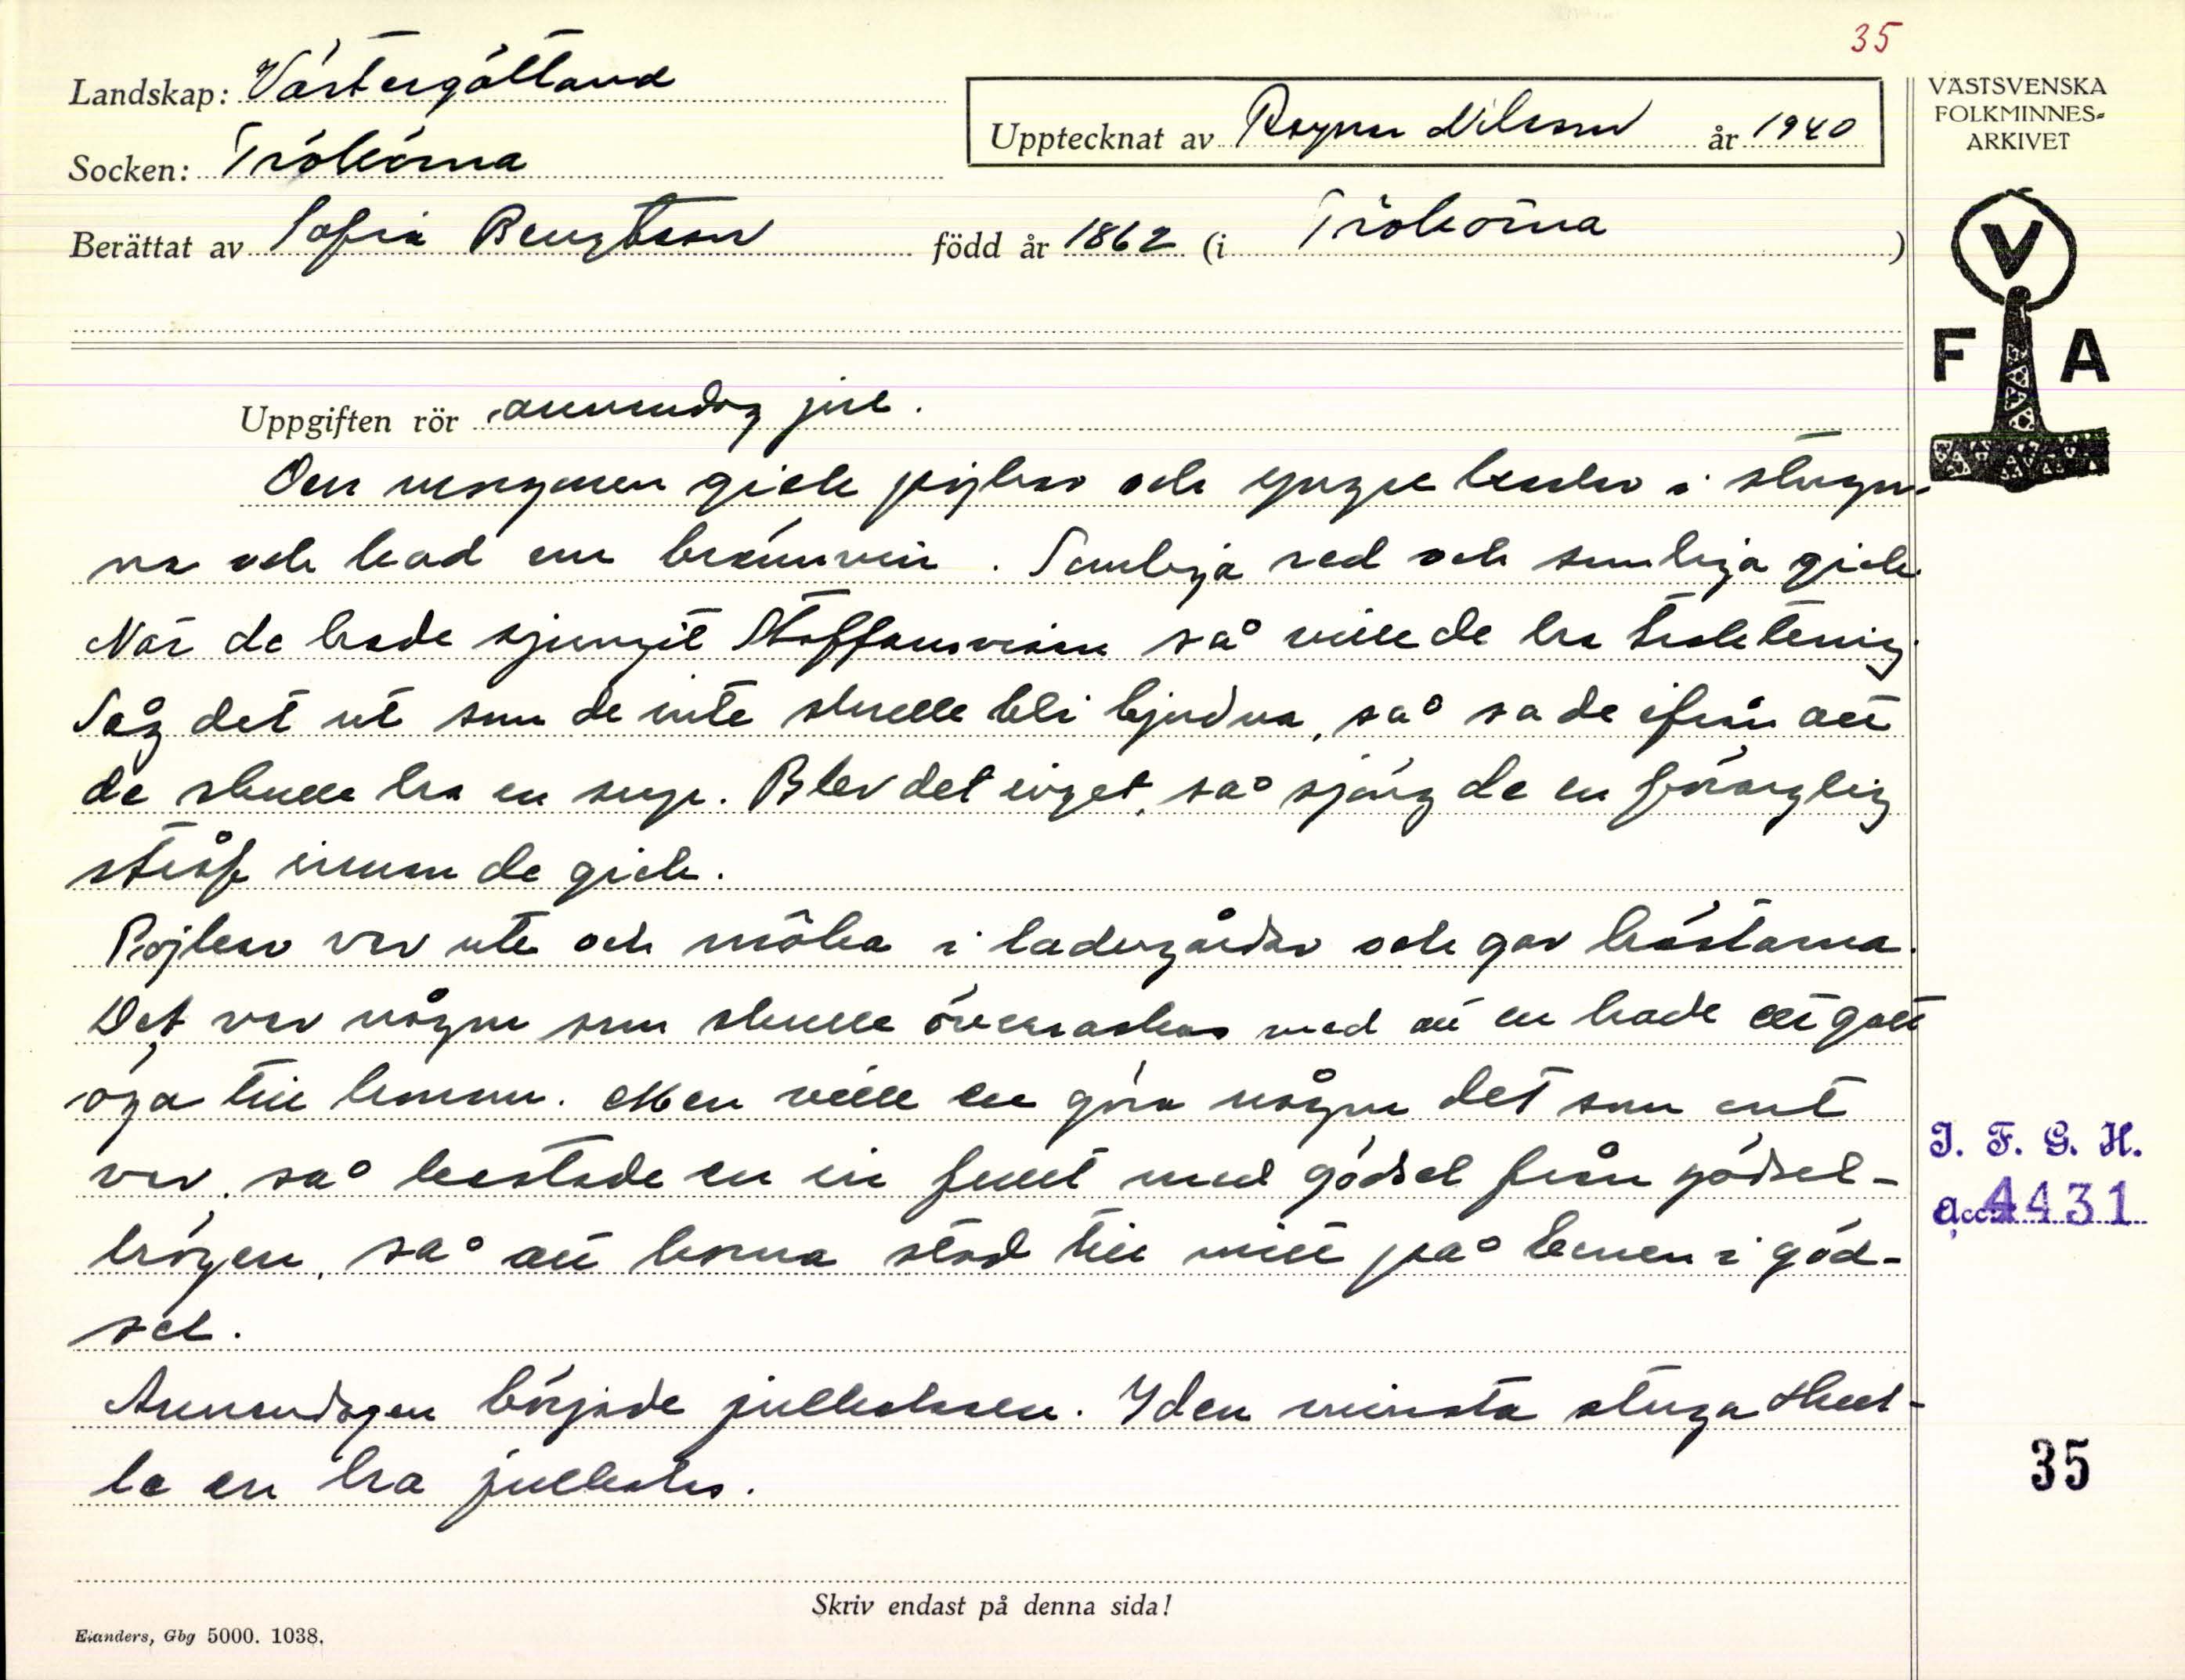 35
Landskap: Västergötland
Socken: Trökörna
Upptecknat av Ragnar Nilsson år 1940
Berättat av Sofia Bengtsson född år 1862 (i Trökörna)
VÄSTSVENSKA
FOLKMINNES-
ARKIVET
V
F A
Uppgiften rör annandag jul.
Den morgonen gick pojkar och yngre karlar i stugor-
na och bad om brännvin. Somliga red och somliga gick.
När de hade sjungit Staffansvisan så ville de ha traktering.
Såg det ut som de inte skulle bli bjudna, så sa de ifrån att
de skulle ha en sup. Blev det inget, så sjöng de en förarglig
strof innan de gick.
Pojkar var ute och måka i ladugårdar och gav hästarna.
Det var någon som skulle överraskas med att en hade ett gott
öga till honom. Men ville en göra någon det som ont
var, så kastade en in fullt med gödsel från gödsel-
högen, så att korna stod till mitt på benen i göd-
sel.
Annandagen började julkalasen. I den minsta stuga skul-
le en ha julkalas.
I. F. G. H.
Acc. 4431
35
Skriv endast på denna sida!
Elanders, Gbg 5000. 1038.